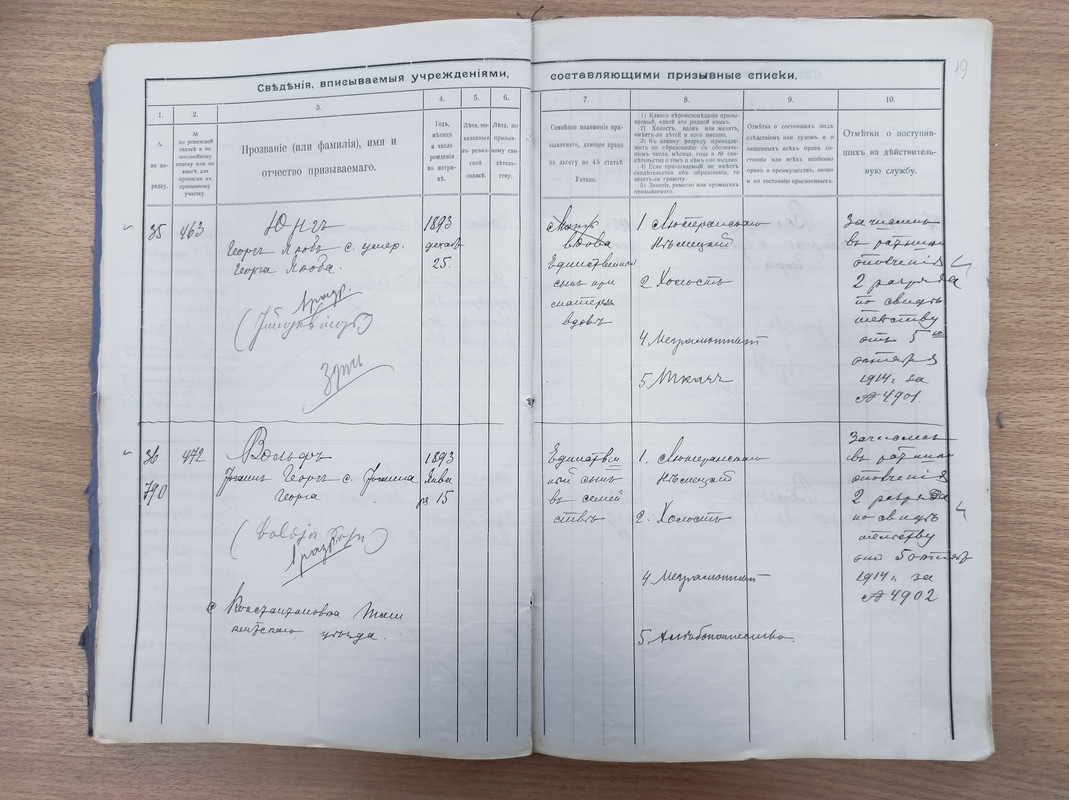 19
Свѣдѣнія, вписываемыя учрежденіями, составляющими призывные списки.
1.
2.
3.
4.
5.
6.
7.
8.
9.
10.
№
по по-
рядку.
№
по ревизской
сказкѣ и по
посемейному
списку или по
книгѣ для
приписки къ
призывному
участку.
Прозваніе (или фамилія), имя и
отчество призываемаго.
Годъ,
мѣсяцъ
и число
рожденія
по метри-
кѣ.
Лѣта, по-
казанныя
въ ревиз-
ской
сказкѣ.
Лѣта, по
призыв-
ному сви-
дѣтель-
ству.
Семейное положеніе при-
зываемаго, дающее право
на льготу по 45 статьѣ
Устава.
1) Какого вѣроисповѣданія призы-
ваемый, какой его родной языкъ.
2) Холостъ, вдовъ или женатъ,
имѣетъ ли дѣтей и кого именно.
3) Къ какому разряду принадлежитъ
по образованію
4) Если призываемый не имѣетъ
свидѣтельства объ образованіи, то
знаетъ-ли грамоту
5) Занятіе, ремесло или промыселъ
призываемаго.
Отмѣтки о состоящихъ подъ
слѣдствіемъ или судомъ и о
лишенныхъ всѣхъ правъ со-
стоянія или всѣхъ особенно
правъ и преимуществъ, лично
и по состоянію присвоенныхъ.
Отмѣтки о поступив-
шихъ на дѣйствитель-
ную службу.
35
463
Юнгъ
Георгъ Яковъ с. умер.
Георга Якова.
1893
декабр
25.
вдова
Единственный
сынъ при
матери
вдовѣ
1 Лютеранскаго
Нѣмецкій
2 Холостъ
4 Неграмотный
5 Ткачъ
Зачисленъ
въ ратники
ополченія
2 разряда
по свидѣ
тельству
отъ 5го
октября
1914 г. за
№ 4901.
36
790
472
Вольфъ
Георгъ с.
Георга
1893
Янва
ря 15
Единствен
ный сынъ
въ семей
ствѣ
1. Лютеранскаго
Нѣмецкій
2. Холостъ
4 Неграмотный
5 Хлѣбопашество
Зачисленъ
въ ратники
ополченія
2 разряда
по свидѣ
тельству
отъ 5 октяб
1914 г. за
№ 4902
с Константиновка
уѣзда.